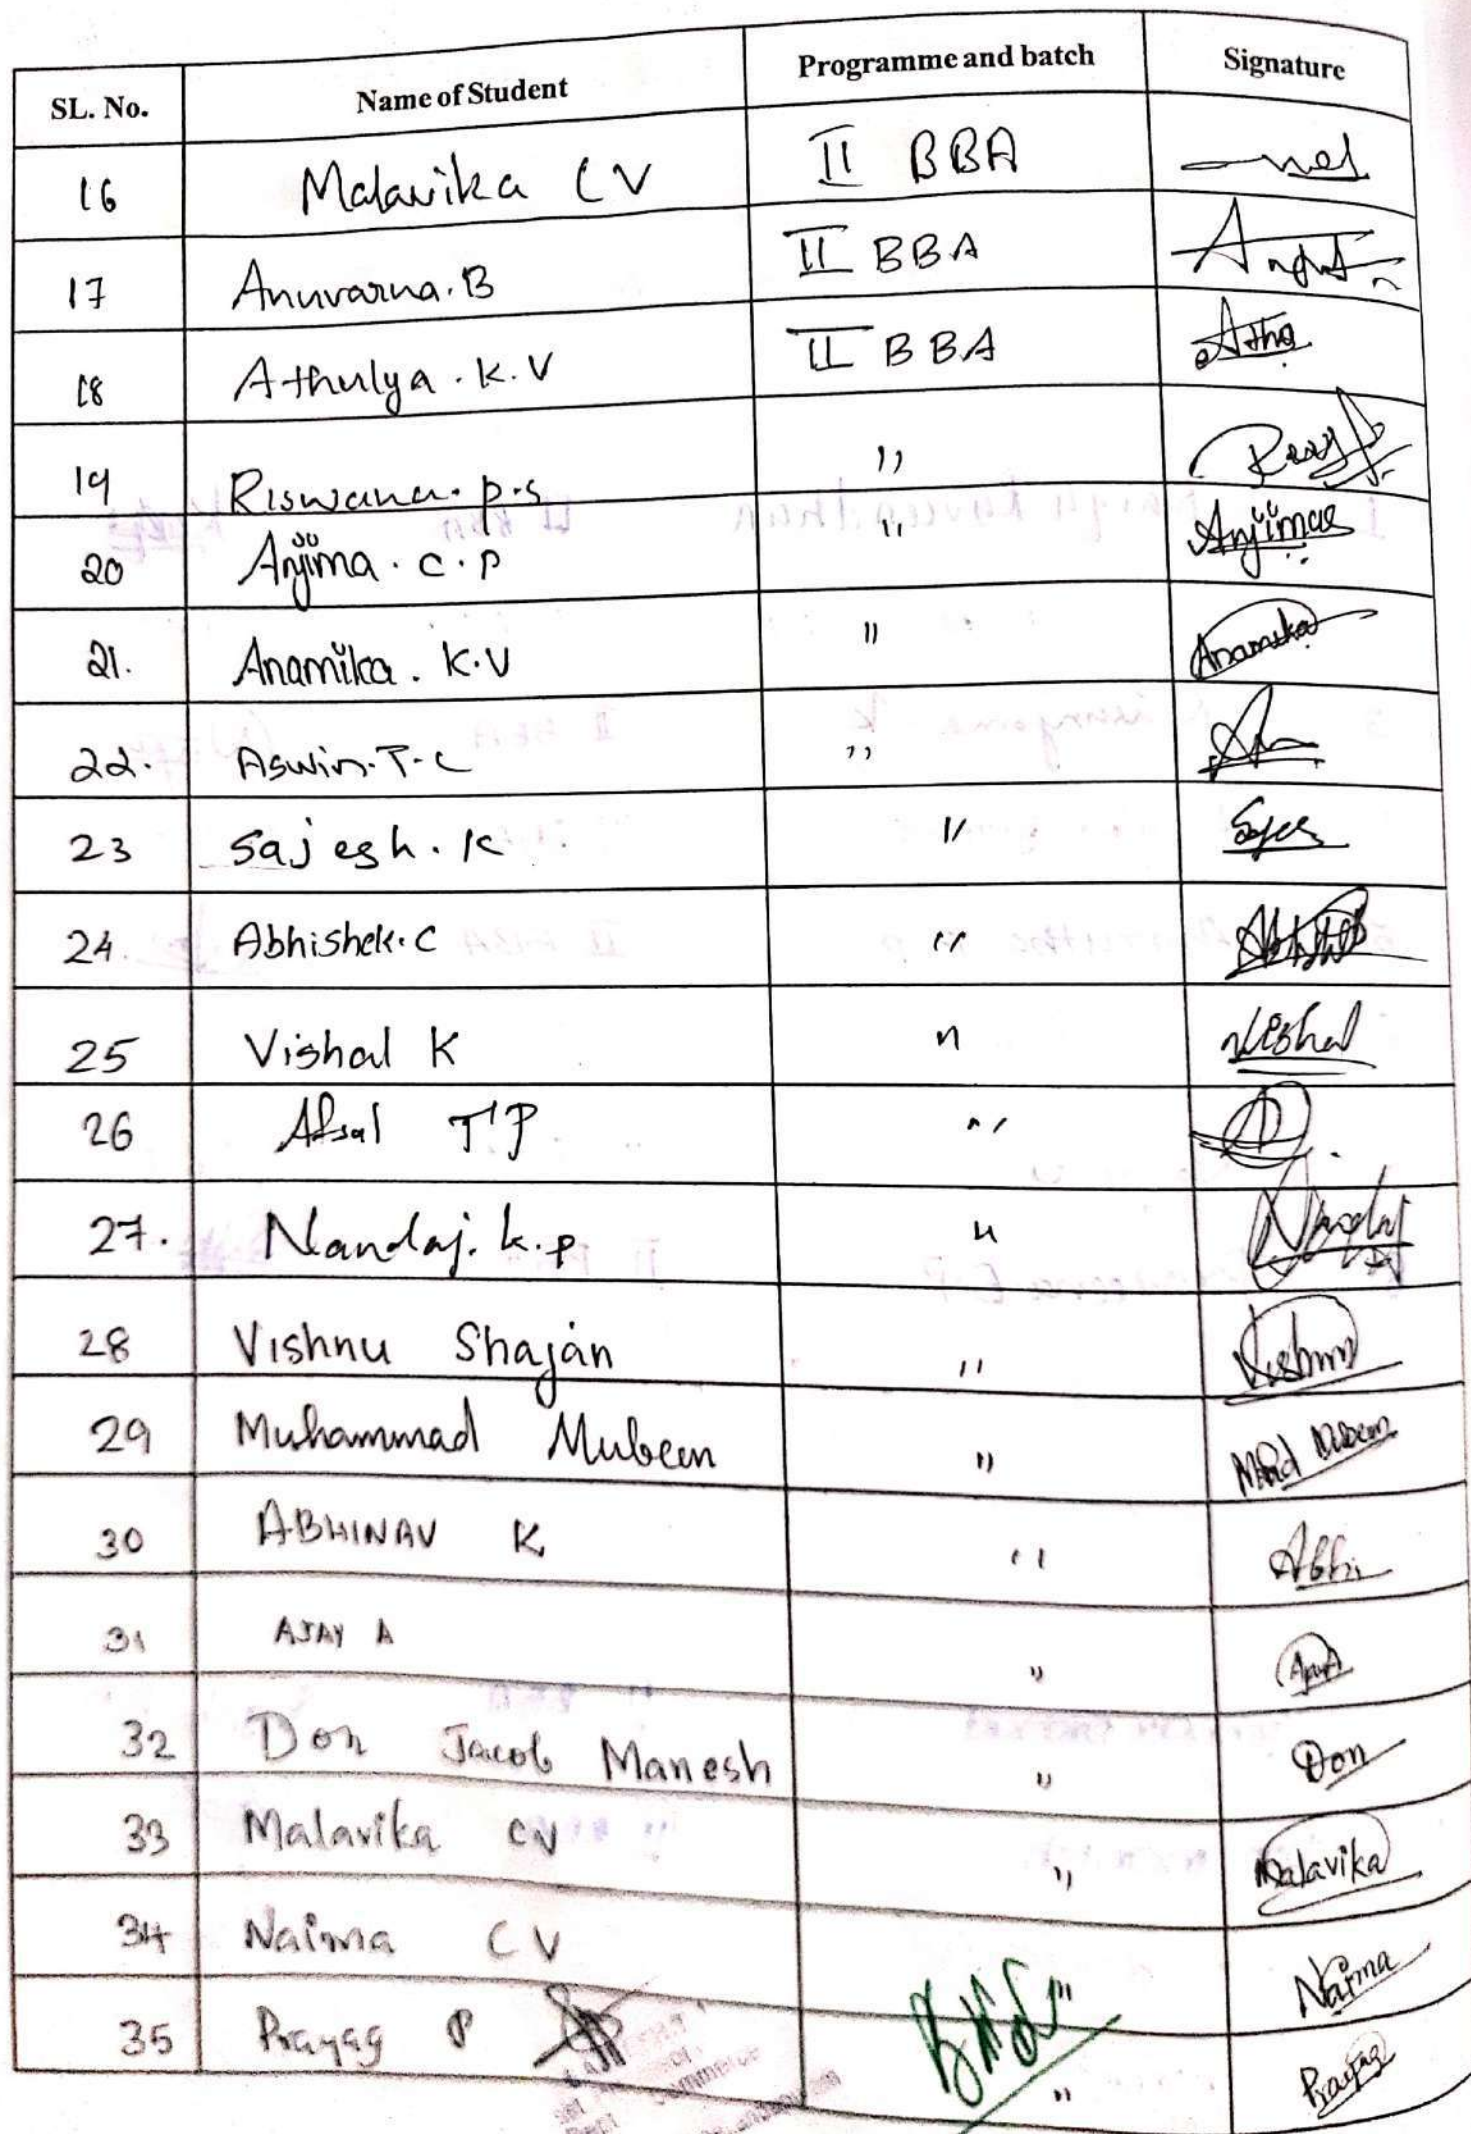 SL. No. Name of Student Programme and batch Signature
16 Malavika C V II BBA
17 Anuvarna.B II BBA
18 Athulya.K.V II BBA Atho
19 Riswana.p.s ,,
20 Anjima.C.P ,, Anjima
21. Anamika.K.V ,, Anamika
22. Aswin.T.C ,,
23 Sajesh.K ,,
24 Abhishek.C ,,
25 Vishal K ,, Vishal
26 Afsal TP ,,
27. Nandaj.k.p ,, Nandaj
28 Vishnu Shajan ,, Vishnu
29 Muhammad Mubeen ,, Mhd Mubeen
30 ABHINAV K ,, Abhi
31 AJAY A ,,
32 Don Jacob Manesh ,, Don
33 Malavika CV ,, Malavika
34 Naima CV ,, Naima
35 Prayag P ,, Prayag